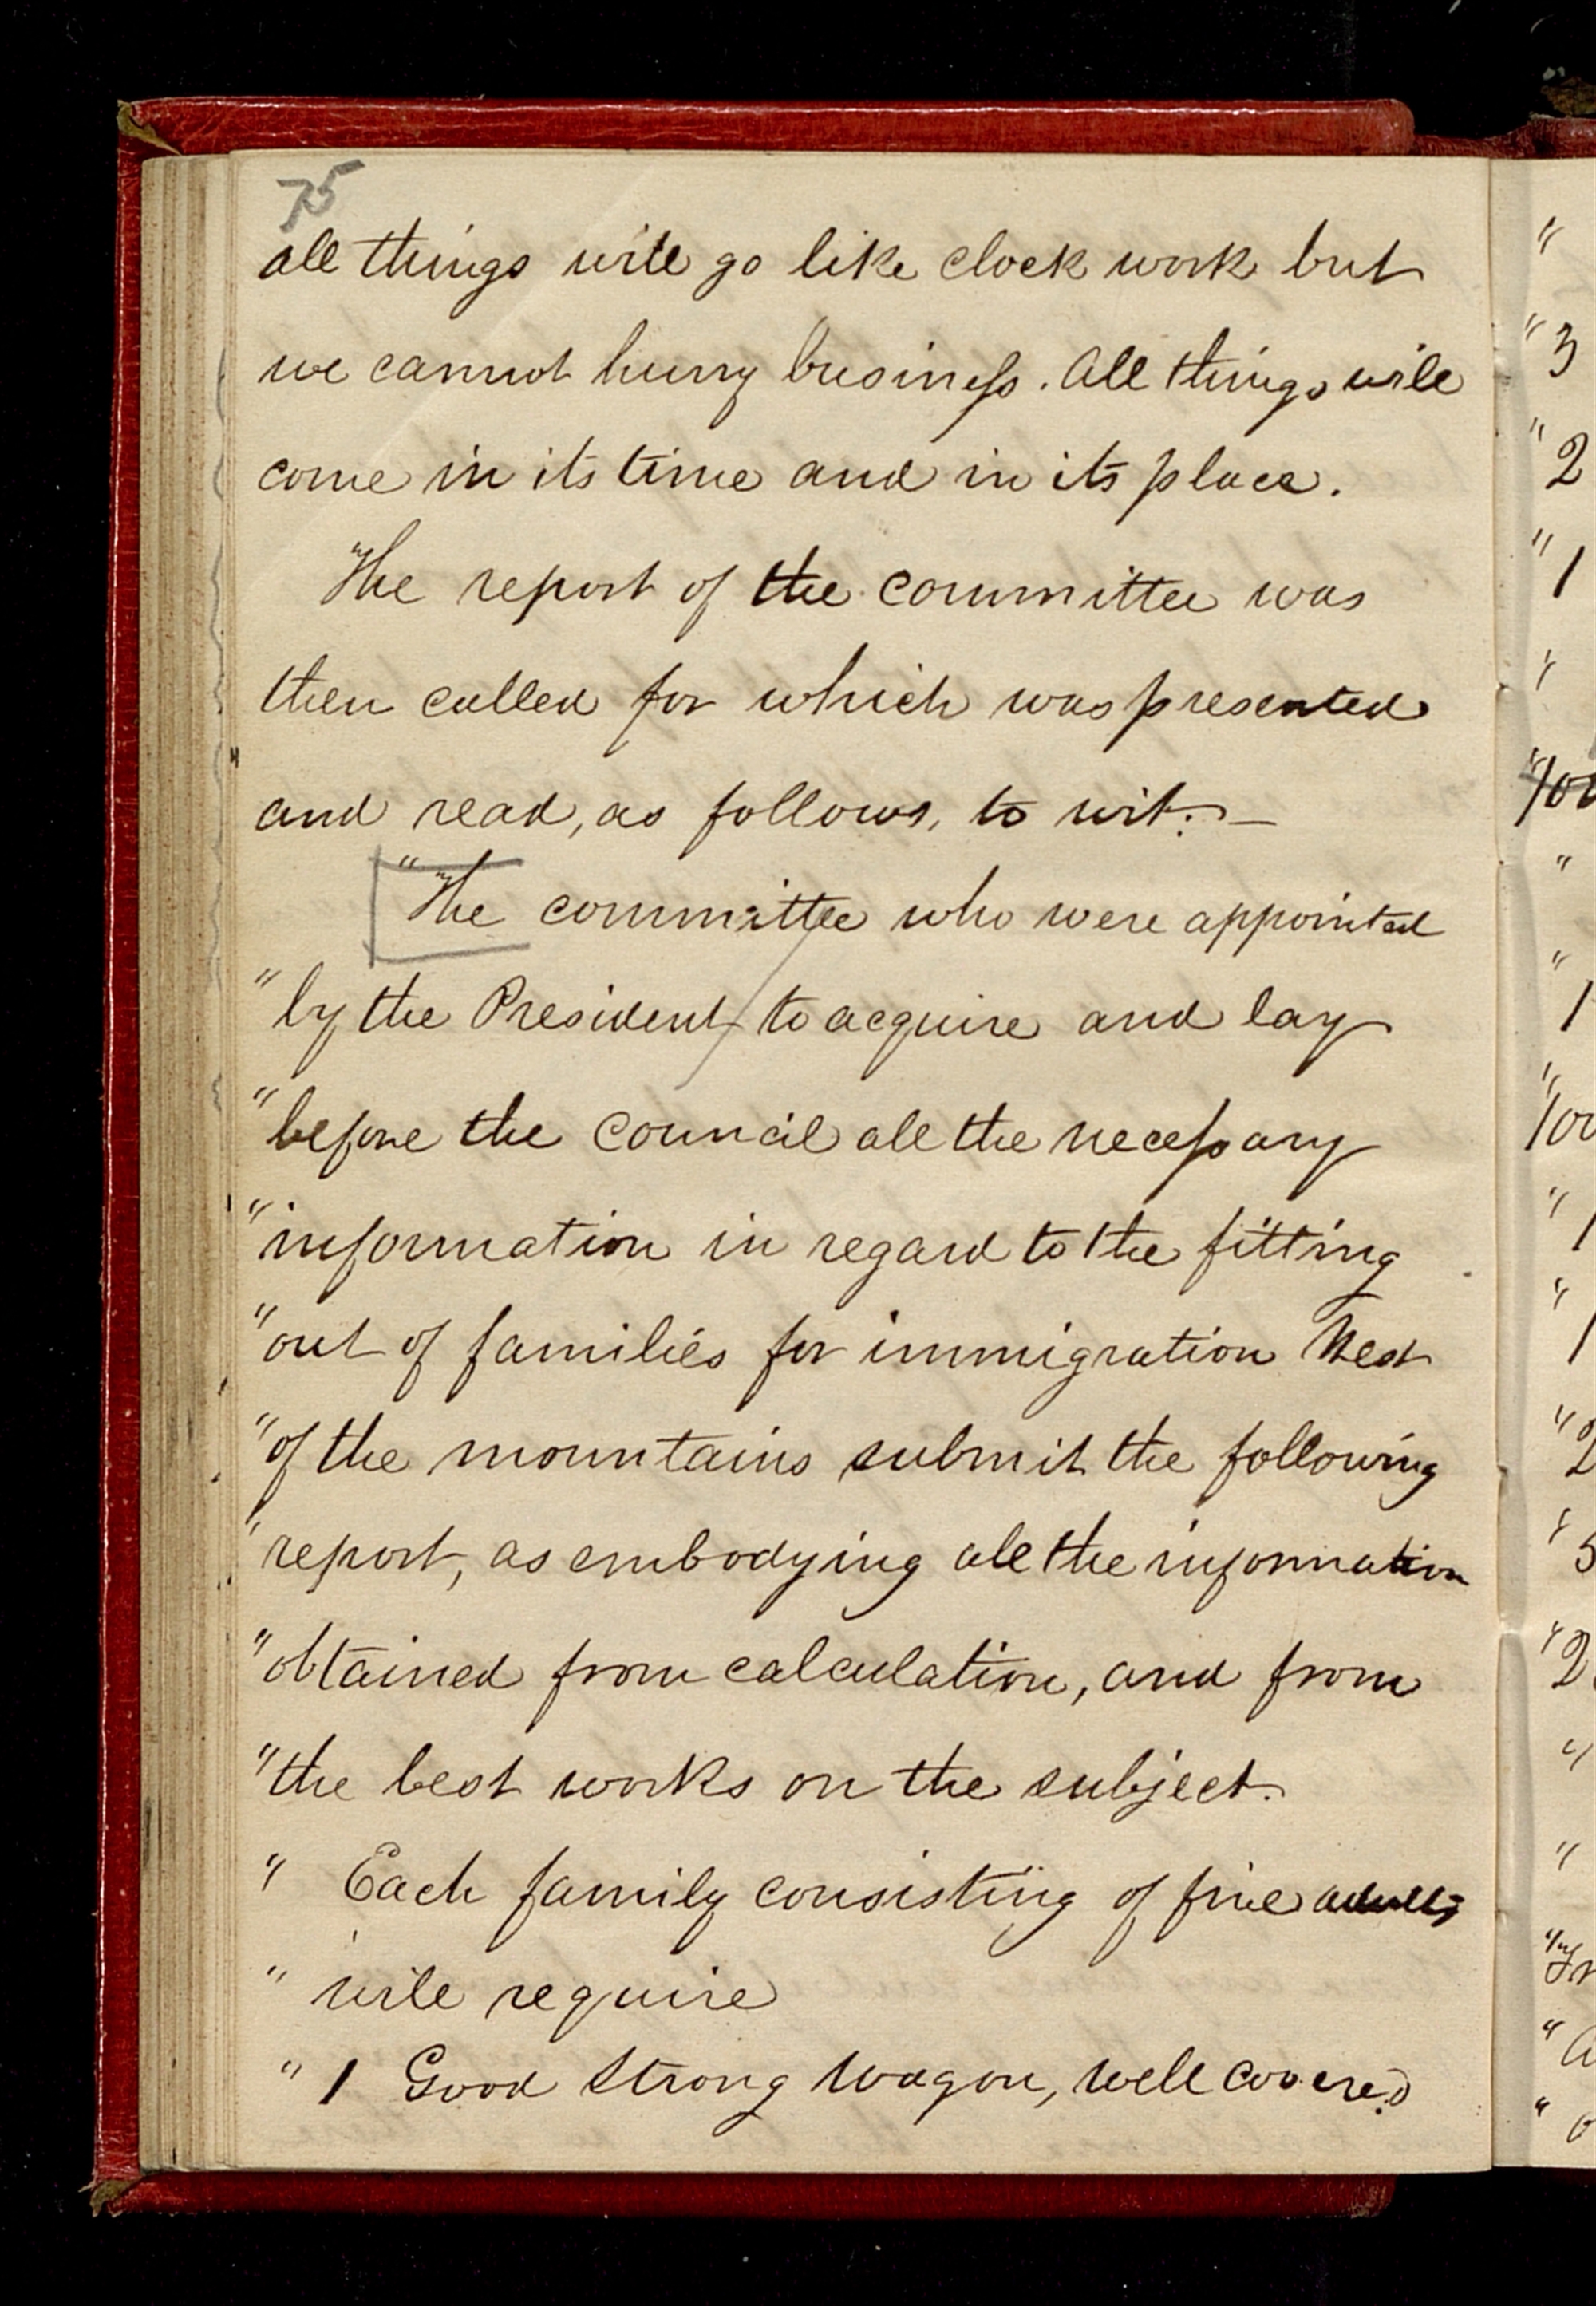 75
all things will go like clock work but
we cannot hurry business. All things will
come in its time and in its place.
The report of the committee was
then called for which was presented
and read, as follows, to wit:—
"The committee who were appointed
"by the President to acquire and lay
"before the Council all the necessary
"information in regard to the fitting
"out of families for immigration West
"of the mountains submit the following
"report, as embodying all the information
"obtained from calculation, and from
"the best works on the subject.
" Each family consisting of five adults
" will require
" 1 Good Strong Wagon, well covered
"
"3
"2
"1
"
"
"
"1
"1
"1
"2
"
"
"